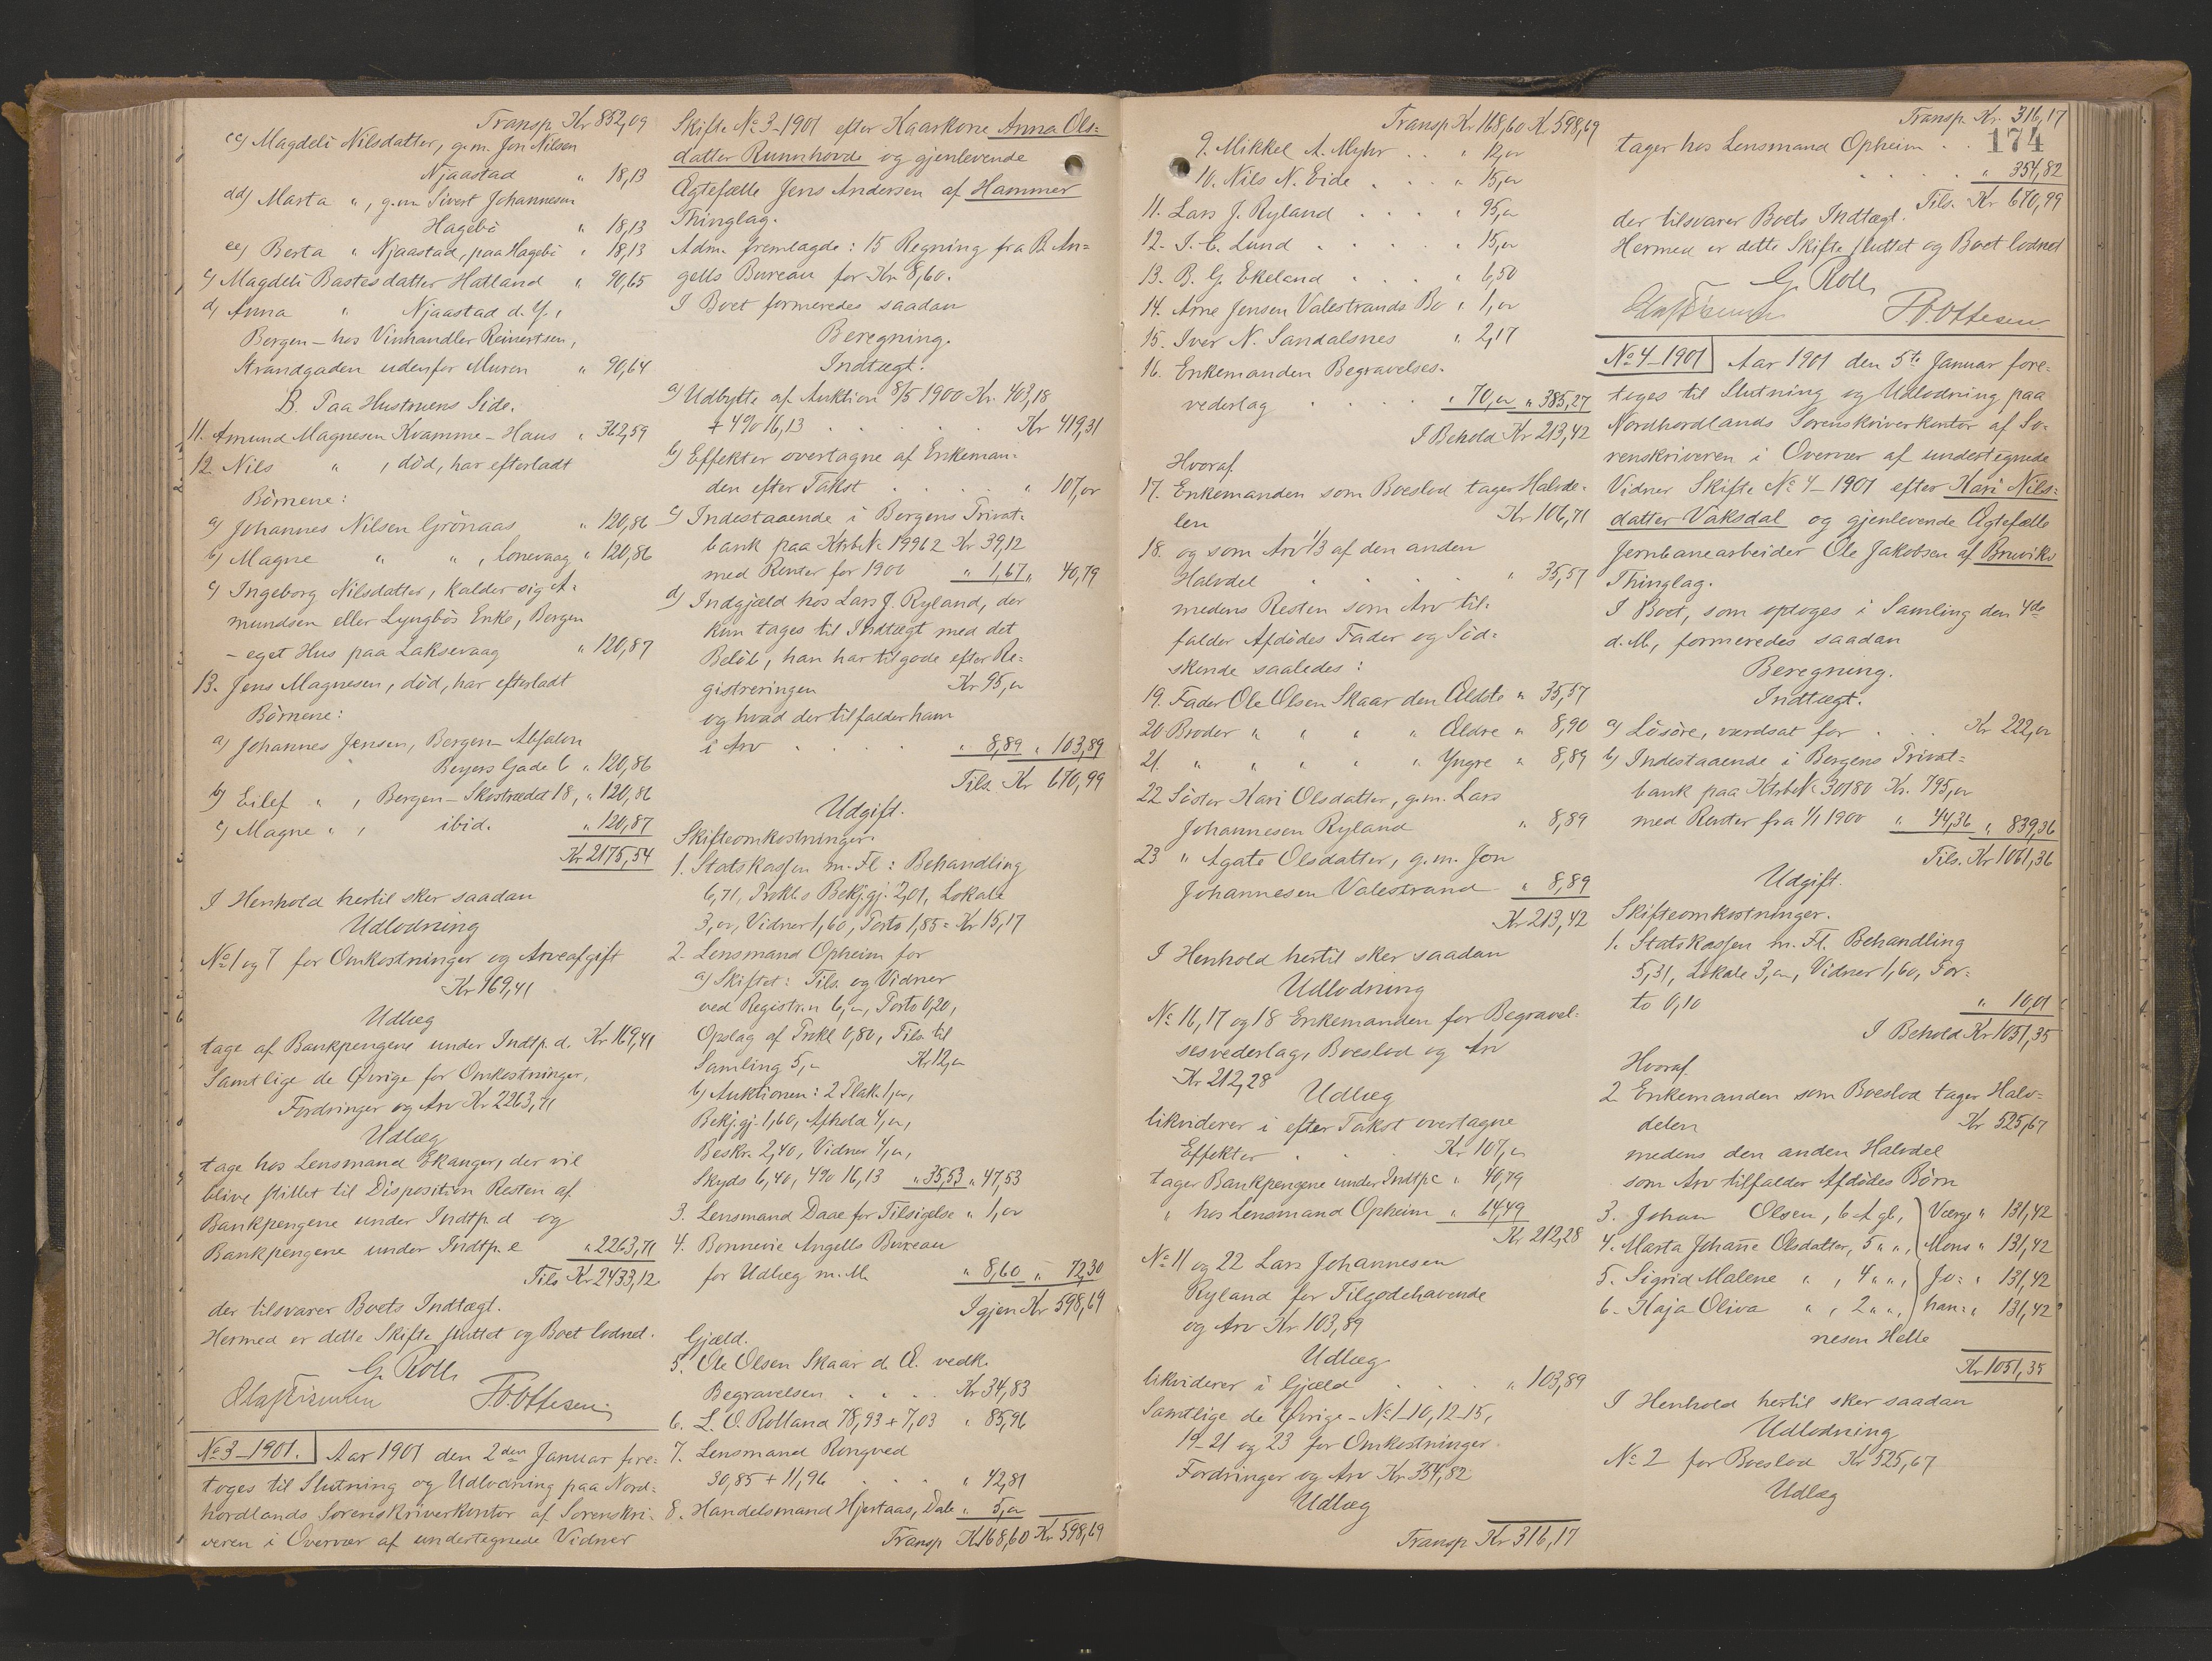 Transp. Kr 852,09
cc) Magdeli Nilsdatter, g.m. Jon Nilsen
Njaastad " 18,13
dd) Marta ", g.m. Sivert Johannesen
Hagebö " 18,13
ee) Berta " Njaastad, paa Hagebö " 18,13
c) Magdeli Bastesdatter Hatland " 90,65
d) Anna " Njaastad d. Y.,
Bergen – hos Vinhandler Reinertsen,
Strandgaden udenfor Muren " 90,64
B. Paa Hustruens Side.
11. Amund Magnesen Kvamme – Haus " 362,59
12. Nils " , död, har efterladt
Börnene:
a) Johannes Nilsen Grönaas " 120,86
b) Magne " " , Lonevaag " 120,86
c) Ingeborg Nilsdatter, kalder sig A=
mundsen eller Lyngbös Enke, Bergen
– eget Hus paa Laksevaag " 120,87
13. Jens Magnesen, död, har efterladt
Börnene:
a) Johannes Jensen, Bergen – Absalon
Beyers Gade 6 " 120,86
b) Eilef " , Bergen – Skostrædet 18, " 120,86
c) Magne " , ibid. " 120,87
Kr 2175,54
I Henhold hertil sker saadan
Udlodning
No 1 og 7 for Omkostninger og Arveafgift
Kr 169,41
Udlæg
tage af Bankpengene under Indtp. d. Kr 169,41
Samtlige de Øvrige for Omkostninger,
Fordringer og Arv Kr 2263,71
Udlæg
tage hos Lensmand Ekanger, der vil
blive stillet til Disposition Resten af
Bankpengene under Indtp. d og
Bankpengene under Indtp. e " 2263,71
Tils. Kr 2433,12
der tilsvarer Boets Indtægt.
Hermed er dette Skifte sluttet og Boet lodnet.
G. Roll
F. Ottesen
No 3–1901. Aar 1901 den 2den Januar fore=
toges til Slutning og Udlodning paa Nord=
hordlands Sorenskriverkontor af Sorenskri=
veren i Overvær af undertegnede Vidner
Skifte No 3–1901 efter Kaarkone Anna Ols=
datter Runnhovde og gjenlevende
Ægtefælle Jens Andersen af Hammer
Thinglag.
Adm. fremlagde: 15 Regning fra B. An=
gells Bureau for Kr 8,60.
I Boet formeredes saadan
Beregning.
Indtægt.
a) Udbytte af Auktion 8/5 1900 Kr. 403,18
+ 4% 16,13 . . . Kr 419,31
b) Effekter overtagne af Enkeman=
den efter Takst . . . " 107,00
c) Indestaaende i Bergens Privat=
bank paa Ktrb. No 19962 Kr 39,12
med Renter for 1900 " 1,67 " 40,79
d) Indgjæld hos Lars J. Ryland, der
kun tages til Indtægt med det
Beløb, han har tilgode efter Re=
gistreringen Kr 95,00
og hvad der tilfalder ham
i Arv . . . " 8,89 " 103,89
Tils. Kr 670,99
Udgift.
Skifteomkostninger.
1. Statskassen m. Fl: Behandling
6,71, Prokl. o Bekj.gj. 2,01, Lokale
3,00, Vidner 1,60, Porto 1,85 = Kr 15,17
2. Lensmand Opheim for
a) Skiftet: Tils. og Vidner
ved Registr.n 6,00, Porto 0,20,
Opslag af Prokl 0,80, Tils. til
Samling 5,00 Kr 12,00
b) Auktionen: 2 Plak. 1,00,
Bekj.gj. 1,60, Afhold 4,00,
Beskr. 2,40, Vidner 4,00,
Skyds 6,40, 4% 16,13 " 35,53 " 47,53
3. Lensmand Daae for Tilsigelse " 1,00
4. Bonnevie Angells Bureau
for Udlæg m. M. " 8,60 " 72,30
Igjen Kr 598,69
Gjæld.
5. Ole Olsen Skaar d. Æ. vedk.
Begravelsen . . . Kr 34,83
6. L. O. Rolland 78,93 + 7,03 " 85,96
7. Lensmand Rongved
30,85 + 11,96 . . . " 42,81
8. Handelsmand Hjertaas, Dale " 5,00
Transp. Kr 168,60 Kr 598,69
Transp. Kr 168,60 Kr 598,69
9. Mikkel A. Myhr . . " 12,00
10. Nils N. Eide . . . " 15,00
11. Lars J. Ryland . . . " 95,00
12. J. C. Lund . . . . " 15,00
13. B. G. Ekeland . . . " 6,50
14. Arne Jensen Valestrands Bo " 1,00
15. Iver N. Sandalsnes " 2,17
16. Enkemanden Begravelses=
vederlag . . . " 70,00 " 385,27
I Behold Kr 213,42
Hvoraf
17. Enkemanden som Boeslod tager Halvde=
len Kr 106,71
18. og som Arv 1/3 af den anden
Halvdel . . . " 35,57
medens Resten som Arv til=
falder Afdödes Fader og Söd=
skende saaledes:
19. Fader Ole Olsen Skaar den Ældste " 35,57
20 Broder " " " " Ældre " 8,90
21. " " " " " Yngre " 8,89
22 Söster Kari Olsdatter, g.m. Lars
Johannesen Ryland " 8,89
23 " Agate Olsdatter, g.m. Jon
Johannesen Valestrand " 8,89
Kr 213,42
I Henhold hertil sker saadan
Udlodning
No 16, 17 og 18 Enkemanden for Begravel=
sesvederlag, Boeslod og Arv
Kr 212,28
Udlæg
likviderer i efter Takst overtagne
Effekter . . . Kr 107,00
tager Bankpengene under Indtp c " 40,79
" hos Lensmand Opheim " 64,49
Kr 212,28
No 11 og 22 Lars Johannesen
Ryland for Tilgodehavende
og Arv Kr 103,89
Udlæg
likviderer i Gjæld . . . " 103,89
Samtlige de Øvrige – No 1–10, 12–15,
19–21 og 23 for Omkostninger
Fordringer og Arv Kr 354,82
Udlæg
Transp Kr 316,17
Transp. Kr. 316,17
174
tager hos Lensmand Opheim . .
. . . . " 354,82
Tils. Kr 670,99
der tilsvarer Boets Indtægt.
Hermed er dette Skifte sluttet og Boet lodnet
G. Roll
F. Ottesen
No 4–1901 Aar 1901 den 5te Januar fore=
toges til Slutning og Udlodning paa
Nordhordlands Sorenskriverkontor af So=
renskriveren i Overvær af undertegnede
Vidner Skifte No 4–1901 efter Kari Nils=
datter Vaksdal og gjenlevende Ægtefælle
Jernbanearbeider Ole Jakobsen af Bruviks
Thinglag.
I Boet, som optoges i Samling den 4de
d. M., formeredes saadan
Beregning.
Indtægt.
a) Lösöre, værdsat for . . . Kr 222,00
b) Indestaaende i Bergens Privat=
bank paa Ktrb. No 30780 Kr. 795,00
med Renter fra 1/1 1900 " 44,36 " 839,36
Tils. Kr 1061,36
Udgift.
Skifteomkostninger.
1. Statskassen m. Fl. Behandling
5,31, Lokale 3,00, Vidner 1,60, Por=
to 0,10 " 10,01
I Behold Kr 1051,35
Hvoraf
2 Enkemanden som Boeslod tager Halv=
delen Kr 525,67
medens den anden Halvdel
som Arv tilfalder Afdödes Börn
3. Johan Olsen, 6 A gl., Værge " 131,42
4. Marta Johanne Olsdatter, 5 " ", Mons " 131,42
5. Sigrid Malene " , 4 " ", Jo= " 131,42
6. Kaja Oliva " , 2 " ", han= " 131,42
nesen Helle
Kr 1051,35
I Henhold hertil sker saadan
Udlodning
No 2 for Boeslod Kr 525,67
Udlæg